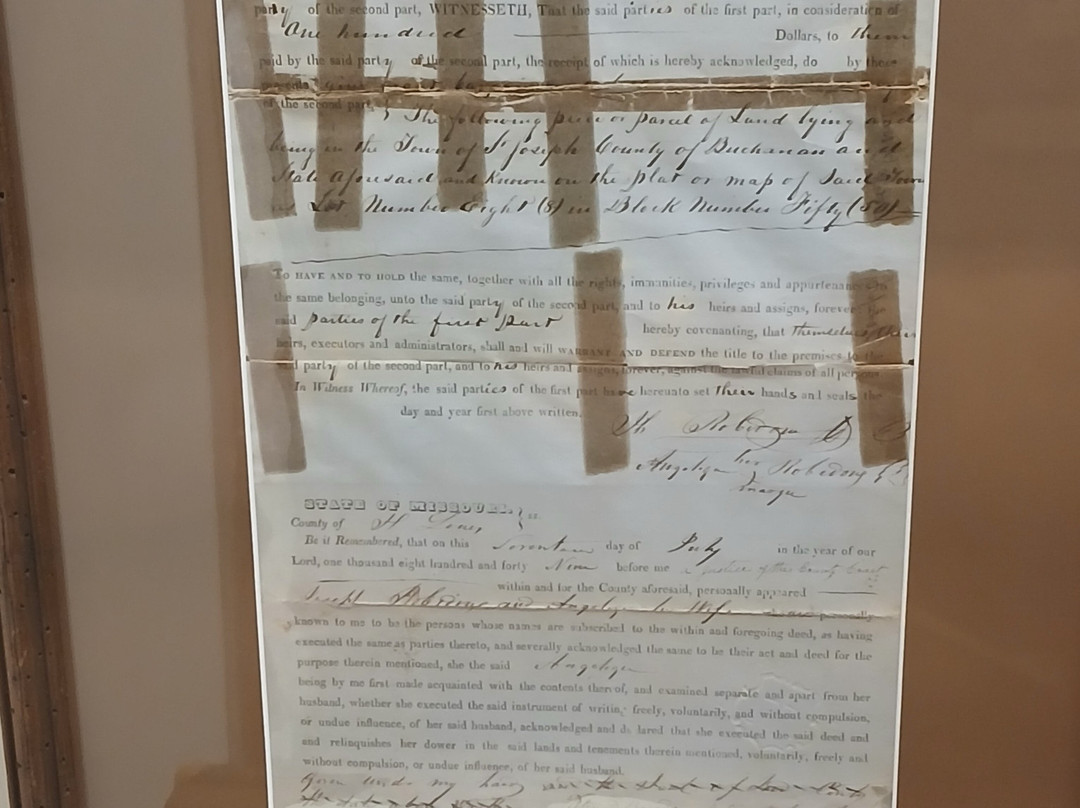 party of the second part, WITNESSETH, That the said parties of the first part, in consideration of
One hundred Dollars, to them
paid by the said party of the second part, the receipt of which is hereby acknowledged, do by these
of the second part, The following piece or parcel of Land lying and
being in the Town of St Joseph County of Buchanan and
State aforesaid and Known on the plat or map of Said Town
as Lot Number Eight (8) in Block Number Fifty (50)
TO HAVE AND TO HOLD the same, together with all the rights, immunities, privileges and appurtenances to
the same belonging, unto the said party of the second part, and to his heirs and assigns, forever
said parties of the first part hereby covenanting, that themselves their
heirs, executors and administrators, shall and will WARRANT AND DEFEND the title to the premises to the
said party of the second part, and to his heirs and assigns, forever, against the lawful claims of all persons
In Witness Whereof, the said parties of the first part have hereunto set their hands and seals the
day and year first above written.
Robidoux
Angelique her Robidoux
STATE OF MISSOURI, } ss.
County of
Be it Remembered, that on this day of July in the year of our
Lord, one thousand eight hundred and forty Nine before me a justice of the County Court
within and for the County aforesaid, personally appeared
Joseph Robidoux and Angelique his Wife personally
known to me to be the persons whose names are subscribed to the within and foregoing deed, as having
executed the same as parties thereto, and severally acknowledged the same to be their act and deed for the
purpose therein mentioned, she the said Angelique
being by me first made acquainted with the contents thereof, and examined separate and apart from her
husband, whether she executed the said instrument of writing freely, voluntarily, and without compulsion,
or undue influence, of her said husband, acknowledged and declared that she executed the said deed and
and relinquishes her dower in the said lands and tenements therein mentioned, voluntarily, freely and
without compulsion, or undue influence, of her said husband.
Given under my hand